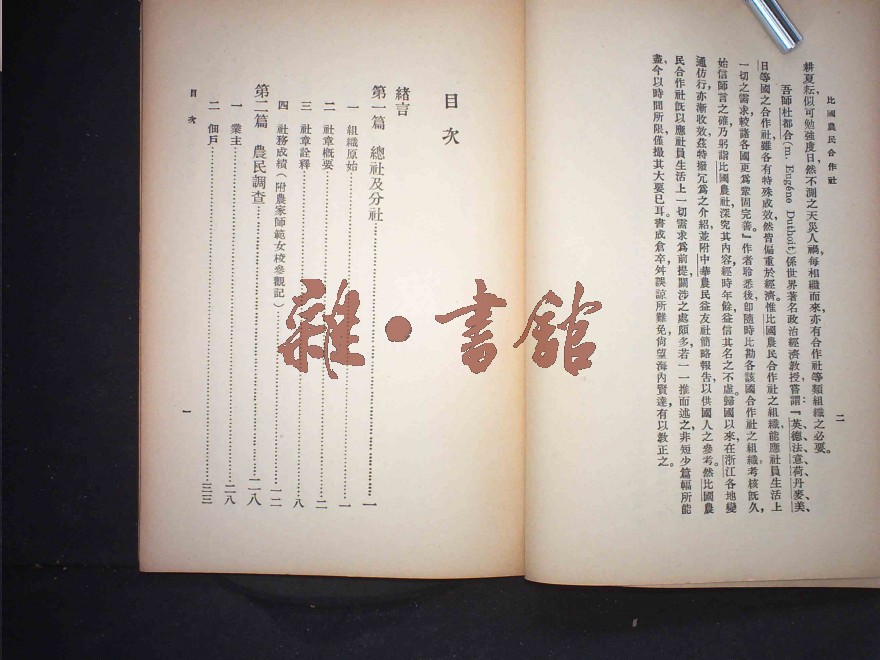 比國農民合作社
二
耕夏耘，似可勉強度日，然不測之天災人禍，每相繼而來，亦有合作社等類組織之必要。
吾師杜都合(m. Eugène Duthoit)係世界著名政治經濟教授，嘗謂：『英、德、法、意、荷、丹麥、美、
日等國之合作社，雖各有特殊成效，然皆偏重於經濟。惟比國農民合作社之組織，能應社員生活上
一切之需求，較諸各國更爲鞏固完善。』作者聆悉後，卽隨時比勘各該國合作社之組織，考核旣久，
始信師言之確，乃躬詣比國農社，深究其內容，經時年餘，益信其名之不虛。歸國以來，在浙江各地變
通仿行，亦漸收效，茲特撥冗爲之介紹，並附中華農民益友社簡略報告，以供國人之參考。然比國農
民合作社旣以應社員生活上一切需求爲前提，關涉之處頗多，若一一推而述之，非短少篇幅所能
盡，今以時間所限，僅撮其大要已耳。書成倉卒，舛誤諒所難免，尙望海內賢達有以教正之。
目次
緒言
第一篇 總社及分社……一
一 組織原始……一
二 社章概要……二
三 社章詮釋……八
四 社務成績（附農家師範女校參觀記）……一二
第二篇 農民調查……二八
一 業主……二八
二 佃戶……三三
目次
一
雜·書館